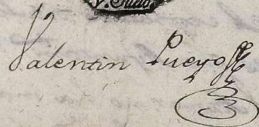 Valentin Pueyo